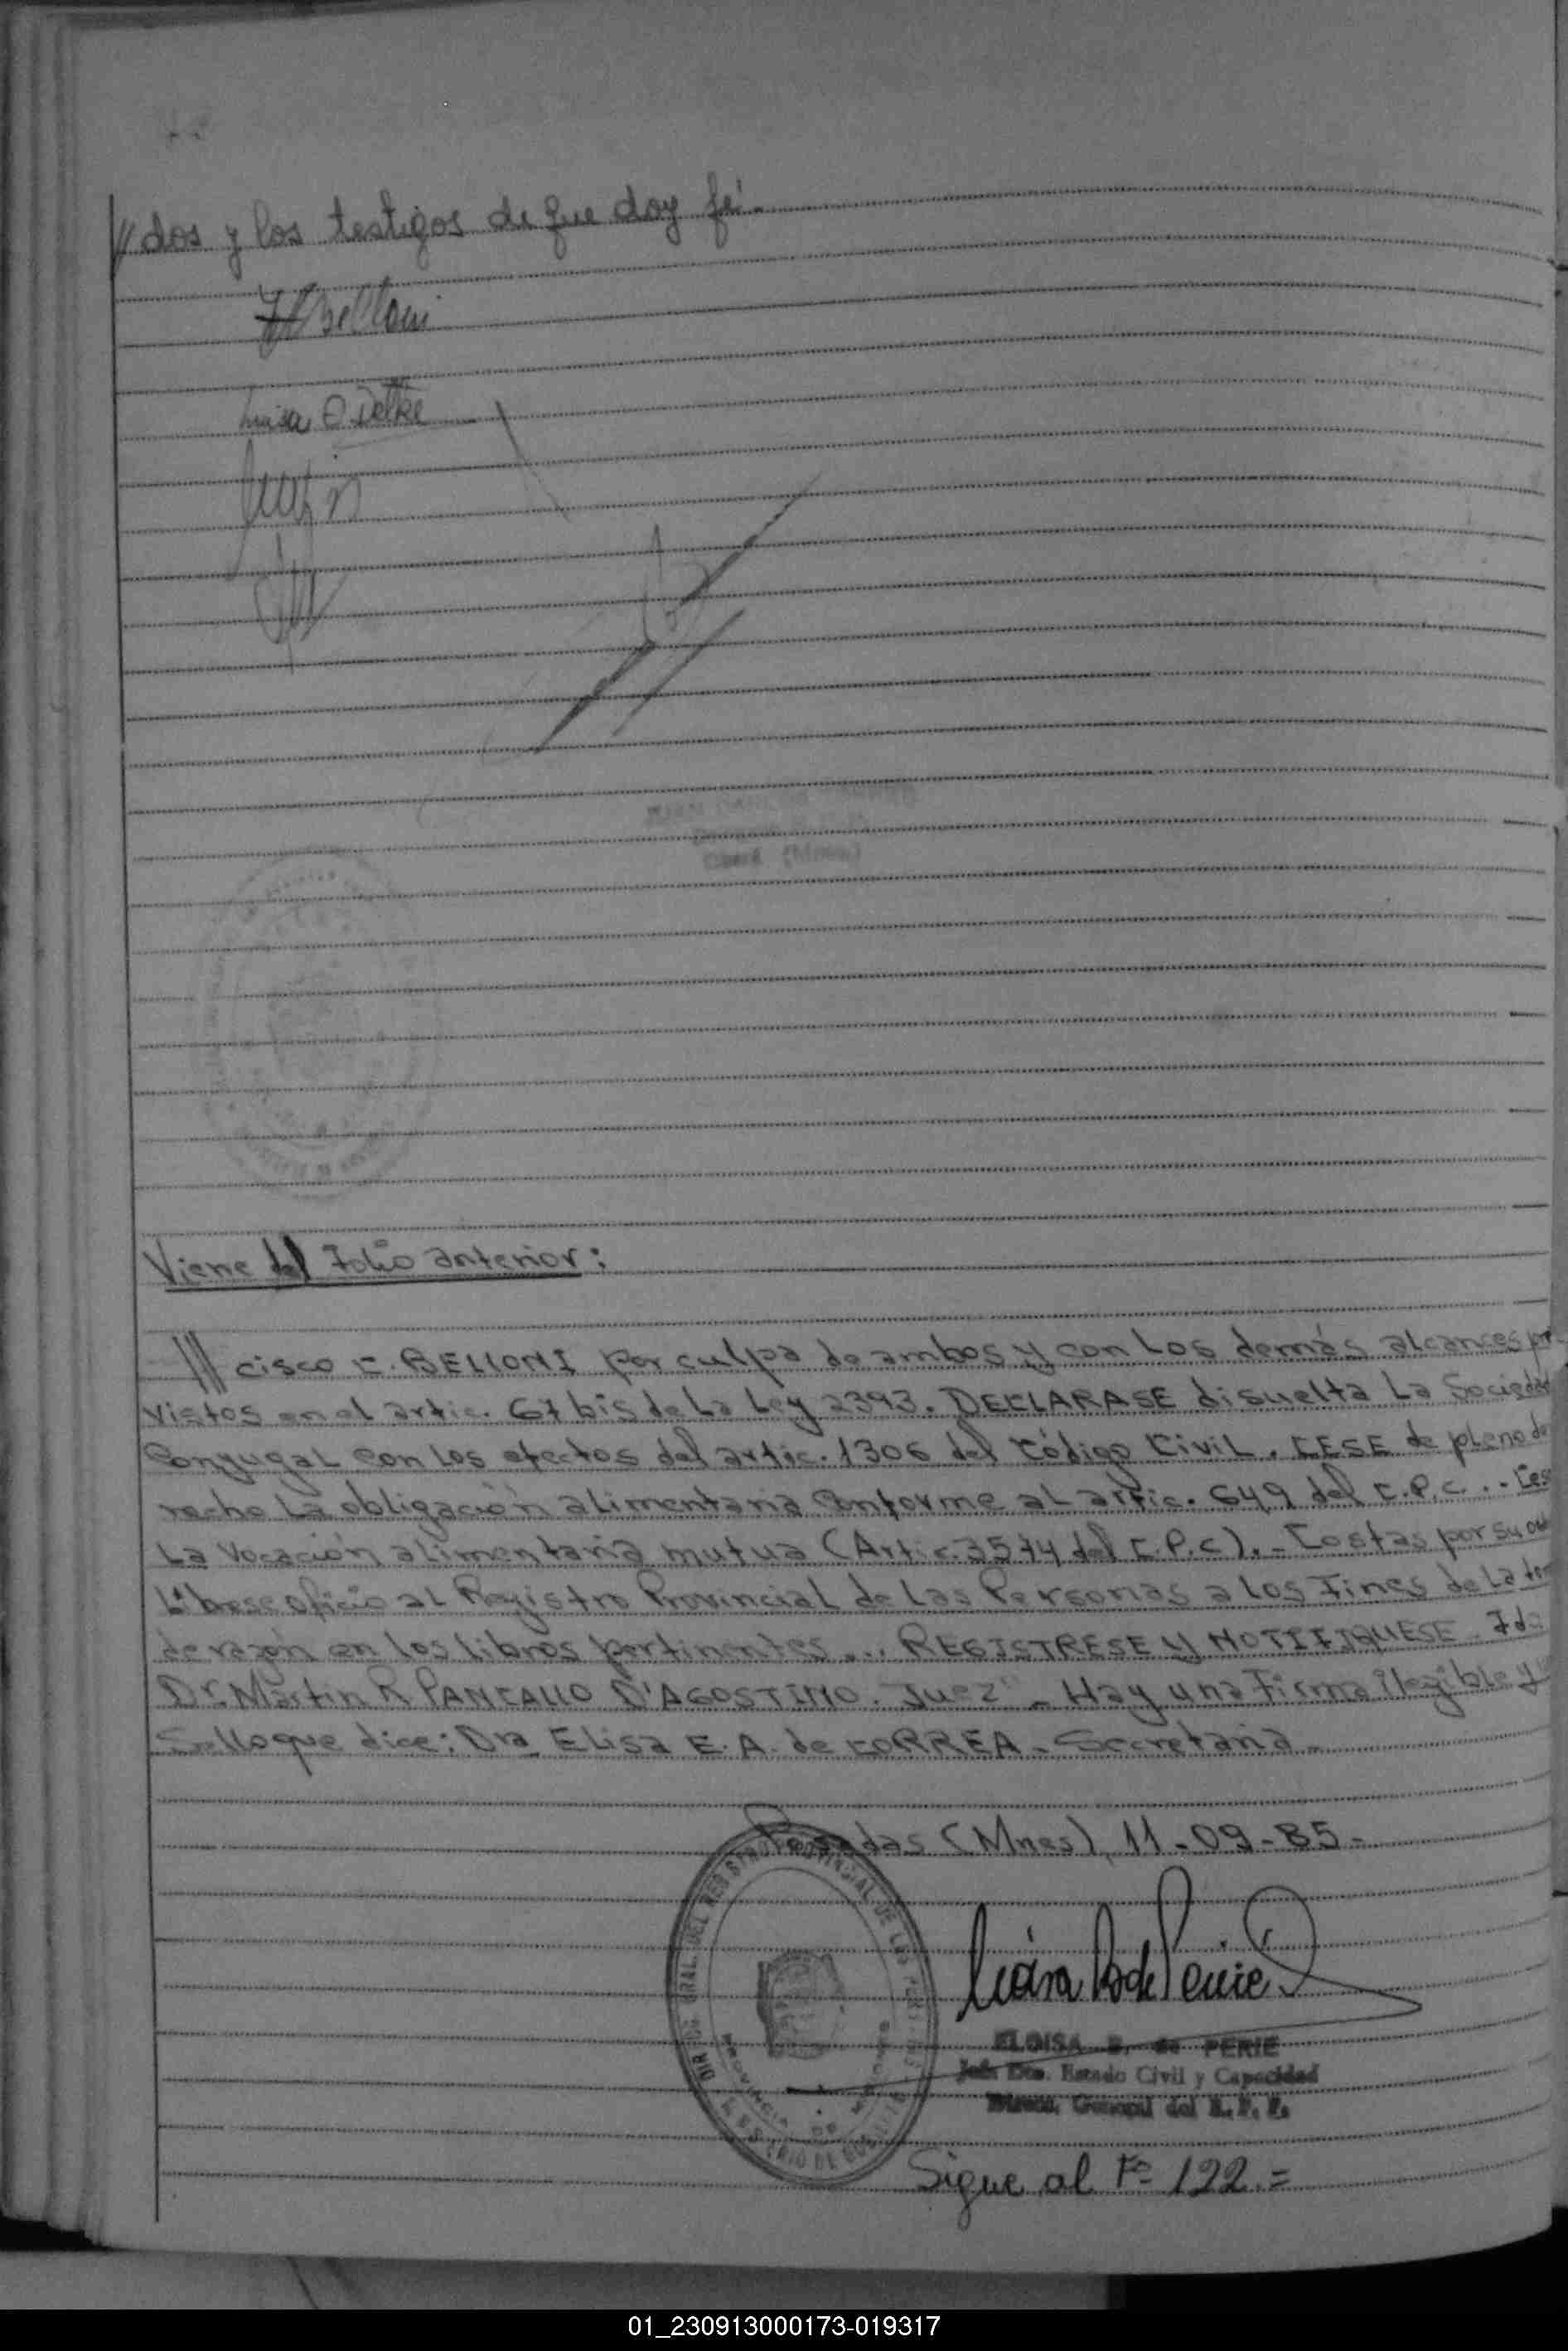 // dos y los testigos de que doy fé.
Belloni
Luisa E. Delke
Oberá (Mnes.)
Viene del Folio anterior:
/// cisco C. BELLONI por culpa de ambos y con los demás alcances pre
vistos en el artic. 67 bis de la Ley 2393. DECLARASE disuelta la Sociedad
Conyugal con los efectos del artic. 1306 del Código Civil. CESE de pleno de
recho la obligación alimentaria conforme al artic. 649 del C.P.C. .- Cese
la vocación alimentaria mutua (Artic. 3574 del C.P.C).- Costas por su
Líbrese oficio al Registro Provincial de las Personas a los fines de la to
de razón en los libros pertinentes... REGISTRESE y NOTIFIQUESE. Fdo
Dr. Martin R. PANCALLO D'AGOSTINO. Juez" - Hay una firma ilegible y
Sello que dice: Dra Elisa E. A. de CORREA - Secretaria -
Posadas (Mnes), 11-09-85-
DIR. GRAL. DEL REGISTRO PROVINCIAL DE LAS PERSONAS
PROVINCIA DE MISIONES
MINISTERIO DE GOBIERNO
ELOISA B. de PERIE
Jefe Dto. Estado Civil y Capacidad
Direcc. General del R. P. P.
Sigue al Fº 122.=
01_230913000173-019317